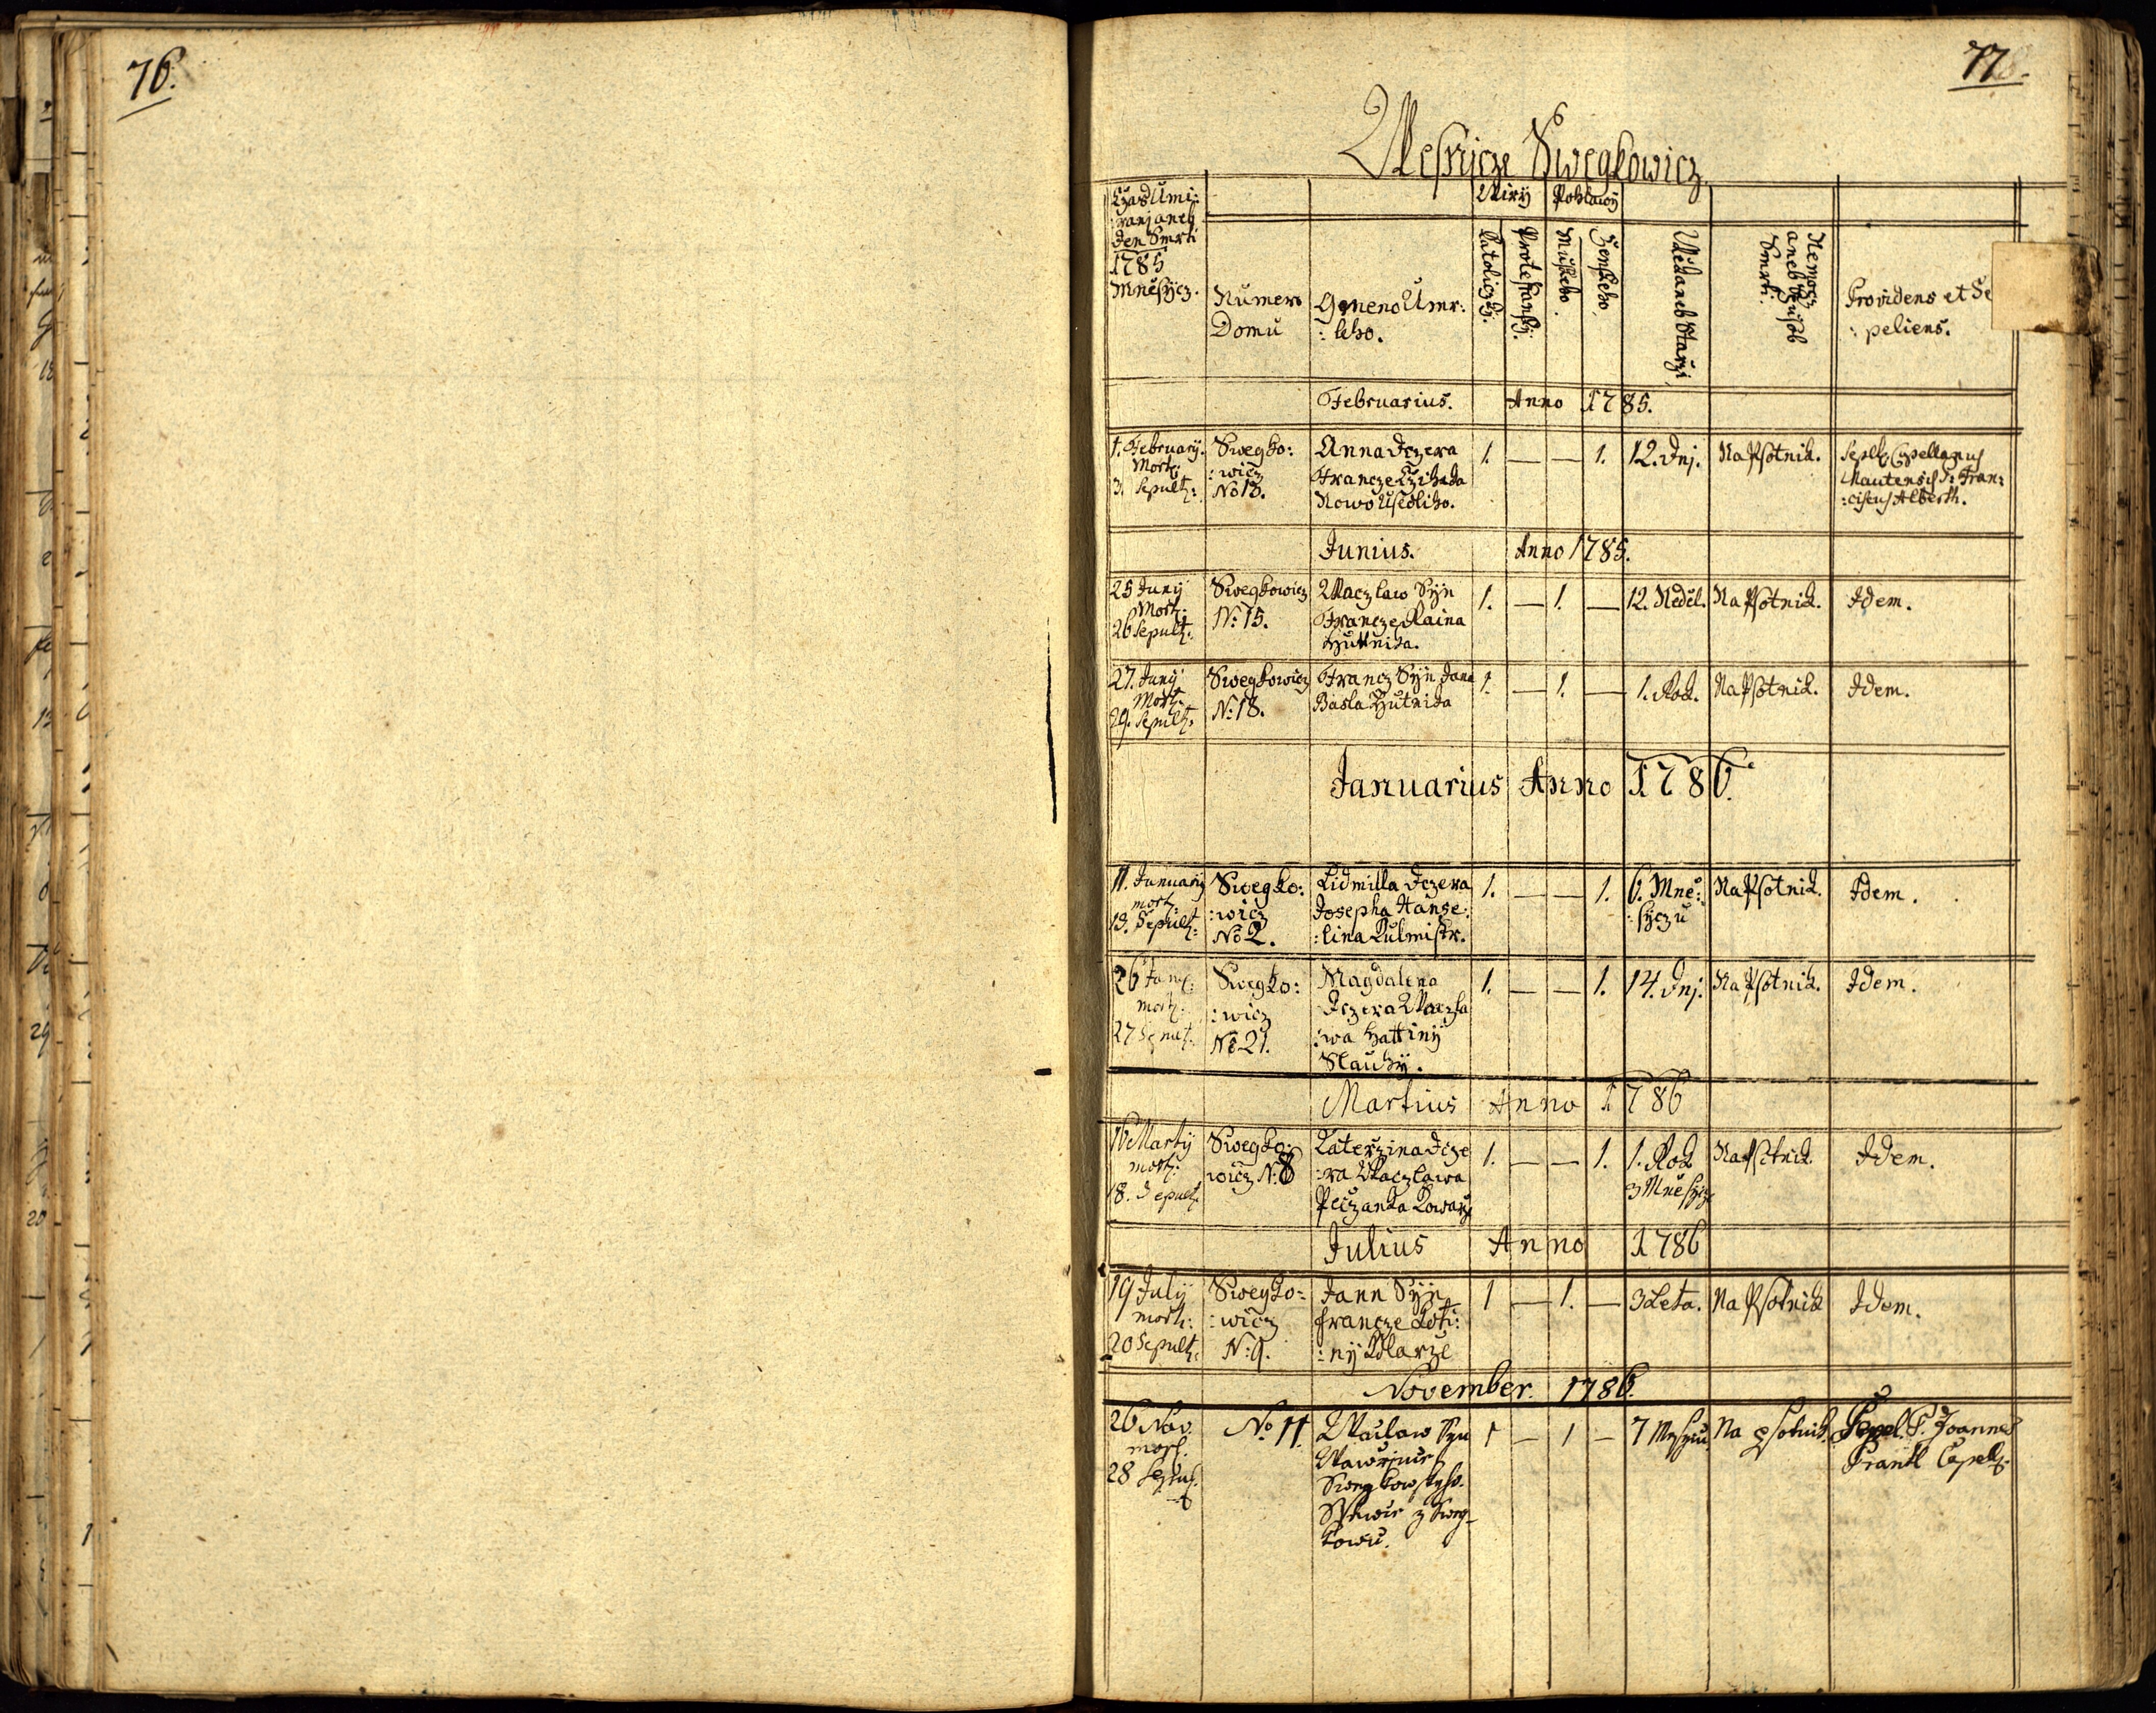 76.
77.
Wesnicze Swegkowicz
Czas Umi:
ranj aneb
den Smrti
1785
Mněsycz.
Numero
Domu
Gmeno Umr:
:leho.
Wiry
Pohlawy
Katoliczky.
Protestansky.
Mužskeho.
Ženskeho.
Wěk aneb Starzi
Nemocz
aneb Spusob
Smrti.
Providens et Se
:peliens.
Februarius. Anno 1785.
1. February.
Mort:
3. Sepult:
Swegko:
:wicz
No 13.
Anna Dczera
Francze
Nowo Usedliho.
1. — — 1.
12. Dnj.
Na Psotnik.
Sepelt Capellanus
Mautensis P: Fran:
:ciscus Alberth.
Junius. Anno 1785.
25 Juny
Mort:
26 Sepult:
Swegkowicz
N: 15.
Waczlaw Syn
Francze Raina
Huttnika.
1. — 1. —
12. Neděl.
Na Psotnik.
Idem.
27. Juny
Mort:
29. Sepult:
Swegkowicz
N: 18.
Francz Syn Jana
Basla Hutnika
1. — 1. —
1. Rok.
Na Psotnik.
Idem.
Januarius Anno 1786.
11. Januarij
mort:
13. Sepult:
Swegko:
:wicz
No 2.
Lidmilla Dczera
Josepha Hanse:
:lina Kulmistr.
1. — — 1.
6. Mně:
:syczu
Na Psotnik.
Idem.
26 Janu:
mort:
27 Sepult:
Swegko:
:wicz
No 21.
Magdalena
Dczera Waczla
:wa Hattiny
Slauhy.
1. — — 1.
14. Dnj.
Na Psotnik.
Idem.
Martius Anno 1786
16 Martij
mort:
18. Sepult:
Swegko:
wicz N: 8
Katerzina Dcze
:ra Waczlawa
Peczanka Kowarze
1. — — 1.
1. Rok
3 Mněsycze
Na Psotnik.
Idem.
Julius Anno 1786
19 July
mort:
20 Sepult:
Swegko:
:wicz
N: 9.
Jann Syn
francze Koti:
:ny Kolarze
1 — 1. —
3 Leta.
Na Psotnik
Idem.
November. 1786.
26 Nov.
mort.
28 Sepult.
No 11.
Waclaw Syn
Wawrince
Swegkowskyho.
z Sweg-
kowic.
1 — 1 —
7 Mesycu
Na psotnik.
Sepel. P. Joannes
Frankl Capell.